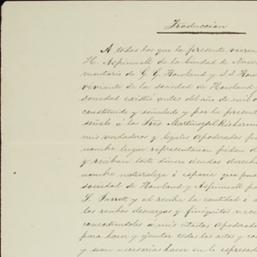 Traduccion
A todos los que la presente vieren
H. Aspinwall de la Ciudad de Nueva
mentario de G. G. Howland y S. S. How
viviente de la sociedad de Howland
sociedad existió antes del año de mil o
constituido y señalado y por la present
señalo á los Sres
mis verdaderos y legales apoderados p
nombre lugar representacion pidan d
y reciban todo dinero deudas derecho
nombre naturaleza ó especie que pue
sociedad de Howland y Aspinwall p
S. y al recibir la cantidad ó c
los recibos descargos y finiquitos nece
concediendoles á mis citados apoderado
para hacer y ejecutar todos los actos y co
y sean necesarias hacer en lo expresado